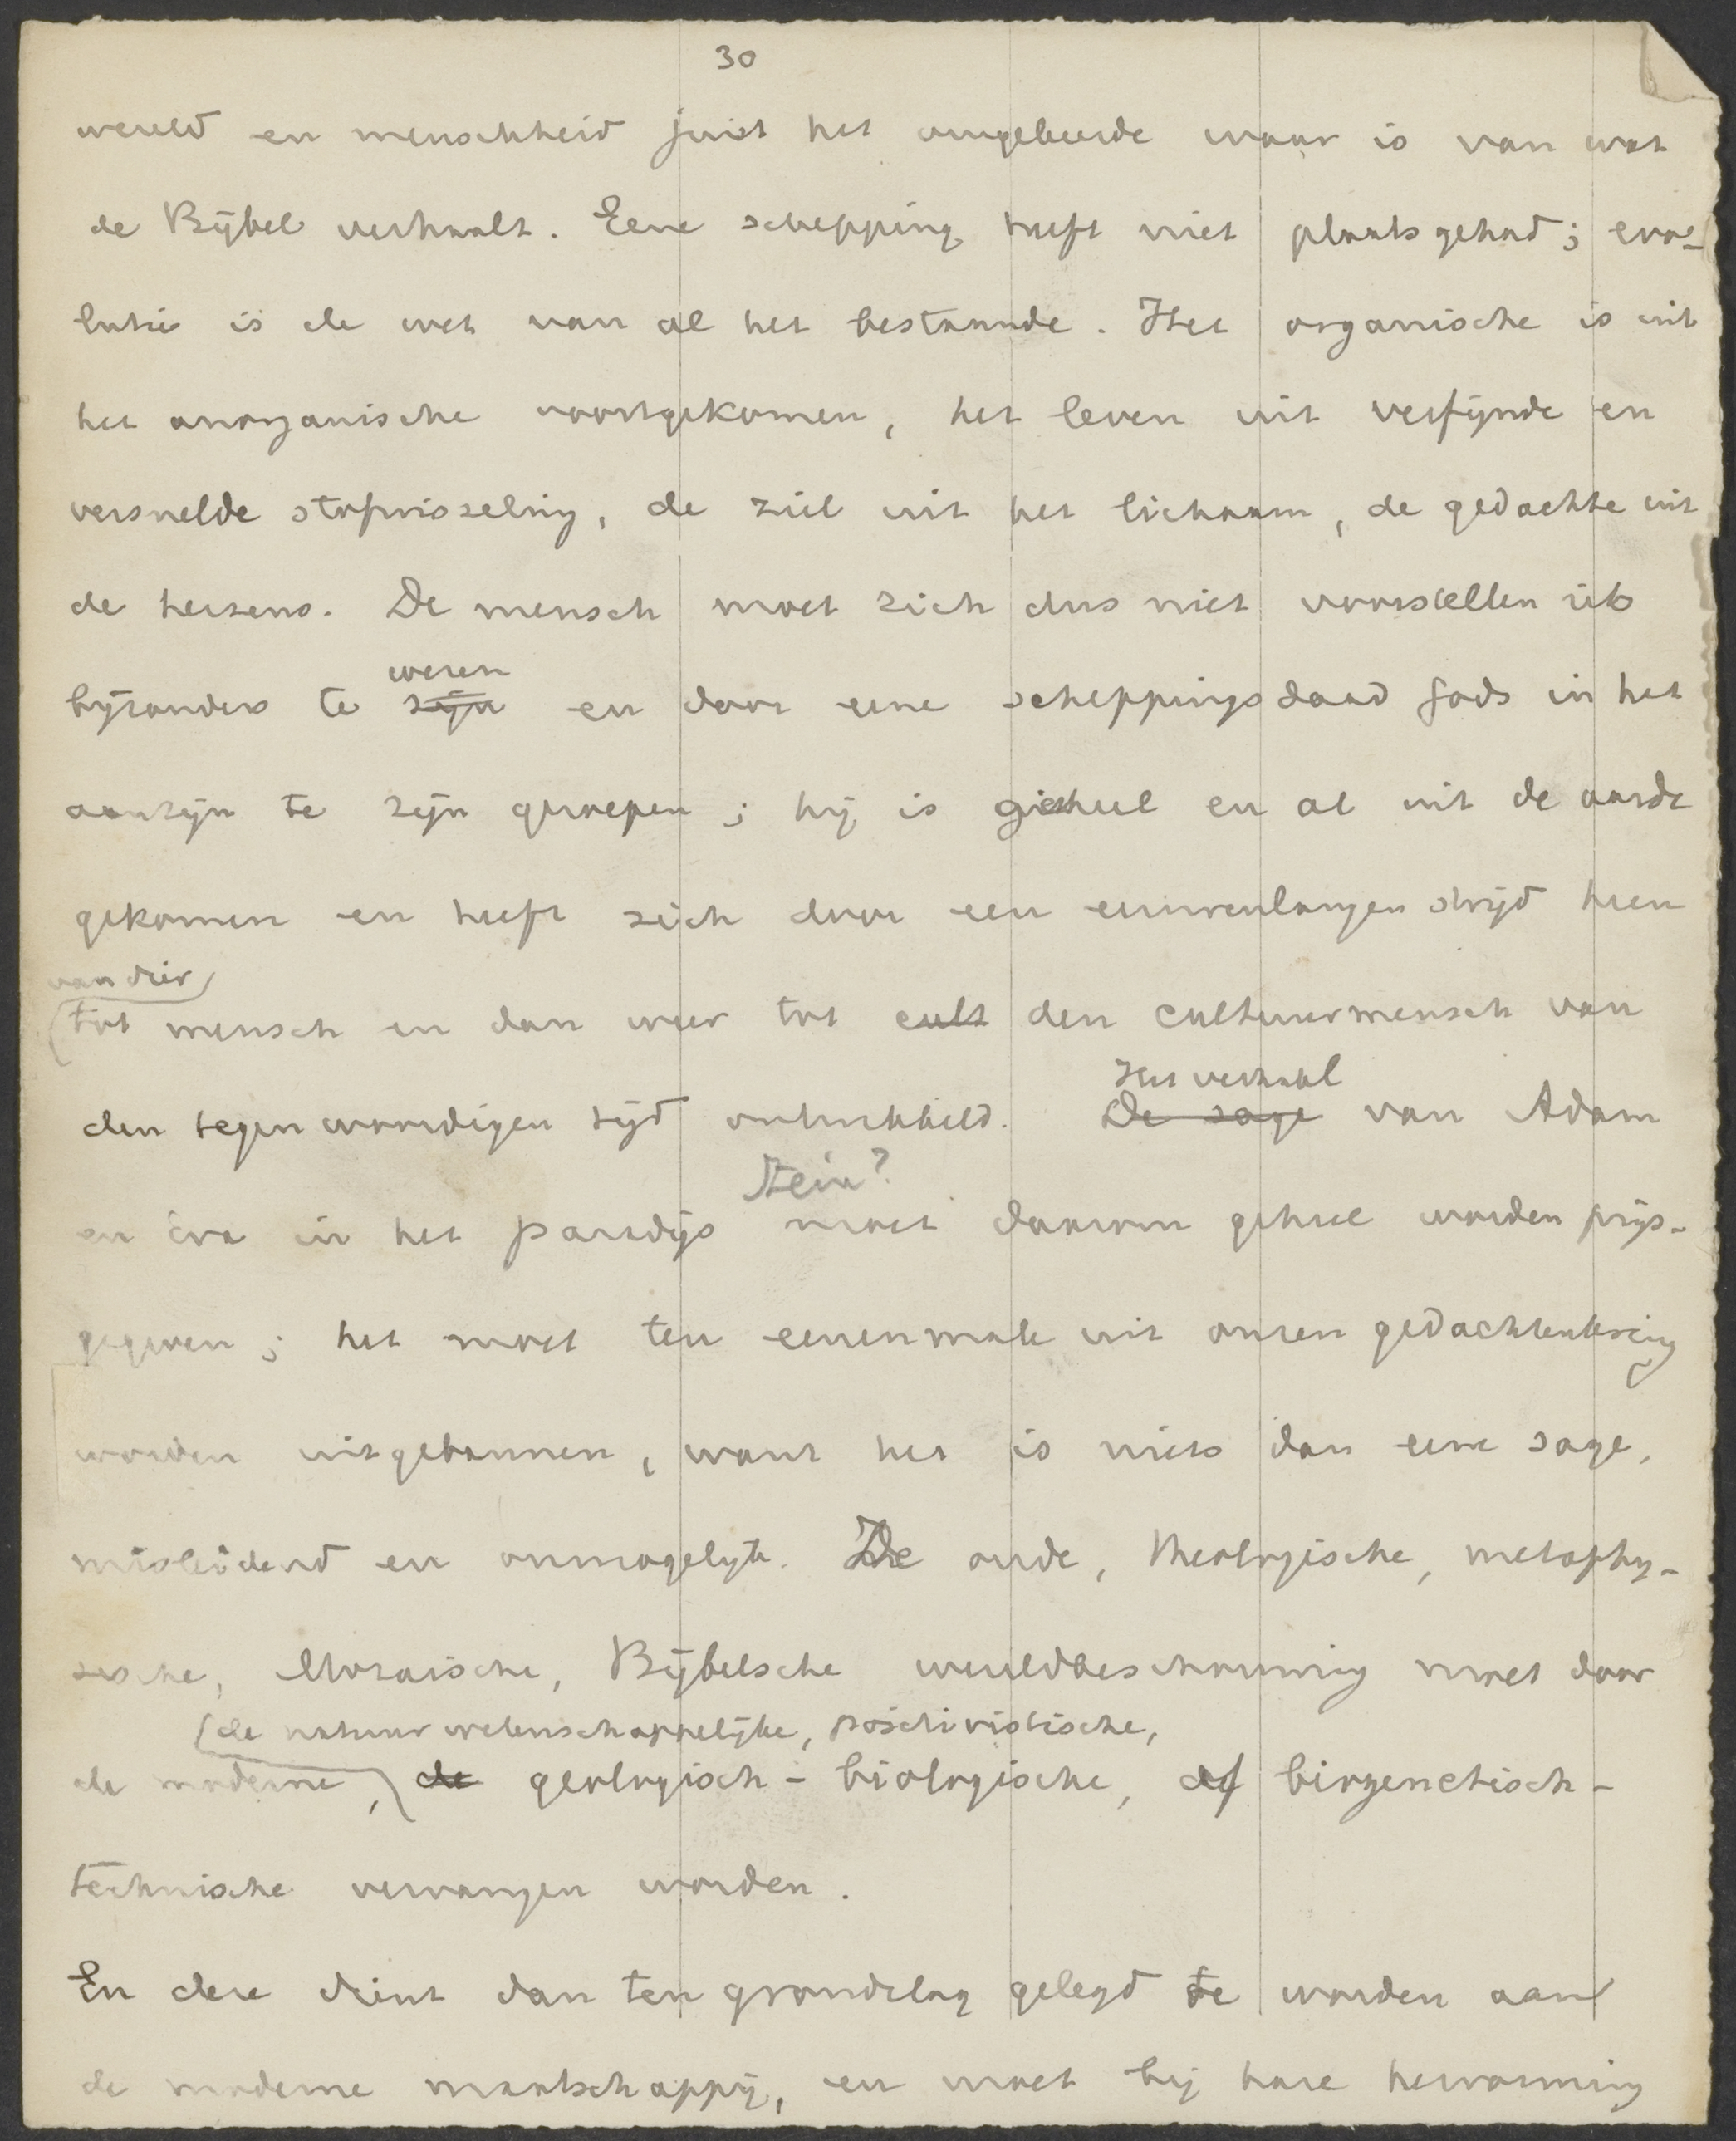 30
wereld en menschheid juist het omgekeerde waar is van wat
de Bijbel verhaalt. Eene schepping heeft niet plaats gehad; evo-
lutie is de wet van al het bestaande. Het organische is uit
het anorganische voortgekomen, het leven uit verfijnde en
versnelde stofwisseling, de ziel uit het lichaam, de gedachte uit
de hersens. De mensch moet zich dus niet voorstellen iets
wezen
bijzonders te zijn en door eene scheppingsdaad Gods in het
aanzijn te zijn geroepen; hij is geheel en al uit de aarde
gekomen en heeft zich door een eeuwenlangen strijd heen
van dier
tot mensch en dan weer tot cult den cultuurmensch van
Het verhaal
den tegenwoordigen tijd ontwikkeld. De sage van Adam
Stein?
en Eva in het paradijs moet daarom geheel worden prijs-
gegeven; het moet ten eenenmale uit onzen gedachtenkring
worden uitgebannen, want het is niets dan eene sage,
misleidend en onmogelijk. De oude, theologische, metaphy-
sische, Mozaische, Bijbelsche wereldbeschouwing moet door
de natuurwetenschappelijke, positivistische,
de moderne, de geologisch-biologische, of biogenetisch-
technische vervangen worden.
En deze dient dan ten grondslag gelegd te worden aan
de moderne maatschappij, en moet bij hare hervorming